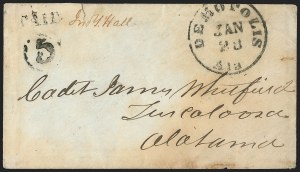 PAID
5
DEMOPOLIS
JAN
28
Ala
Cadet James Whitfield
Tuscaloosa
Alabama